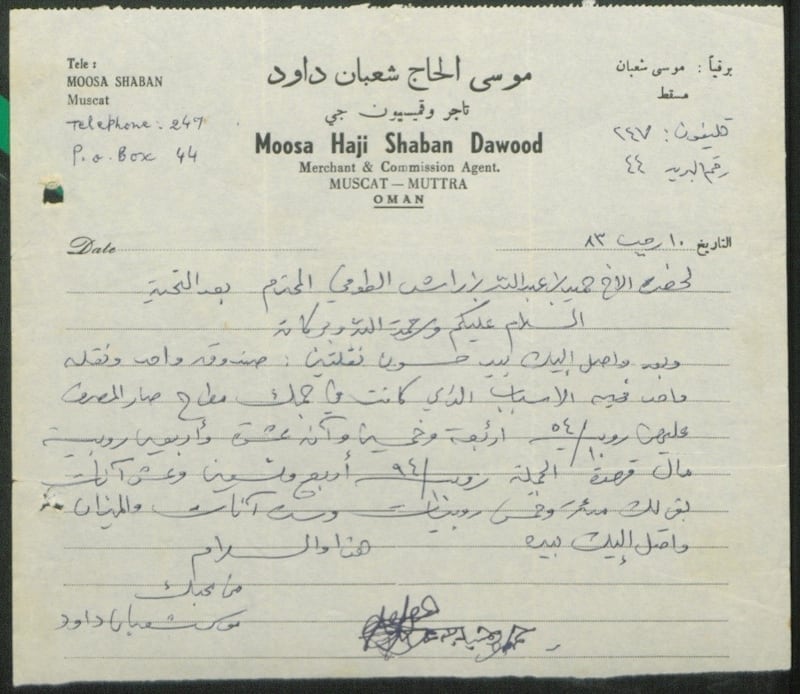 Tele :
MOOSA SHABAN
Muscat
Telephone: 247
P.O. Box 44
موسى الحاج شعبان داود
تاجر وقميسيون جي
Moosa Haji Shaban Dawood
Merchant & Commission Agent.
MUSCAT — MUTTRA
OMAN
برقياً : موسى شعبان
مسقط
تليفون: ٢٤٧
رقم البريد ٤٤
Date
التاريخ ١٠ رجب ٨٣
لحضرة الأخ حميد بن عبدالله بن راشد المحترم بعد التحية
السلام عليكم ورحمة الله وبركاته
وبعد واصل إليك بيد نقلتين : صندوق واحد ونقله
واحد فيه الأسباب الذي كانت في مطرح صار المصرف
عليهن روبية ٥٤/١٠ أربعة وخمسين وآنه عشرة وأربعين روبية
مال الجملة روبية ٩٤/ أربع وتسعين وعشر آنات
بقى لك وخمس روبيات وست آنات والميزان
واصل إليك بيده هذا والسلام
من محبك
موسى شعبان داود